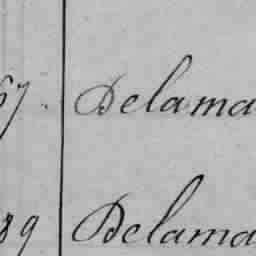 67. Delama
89 Delama